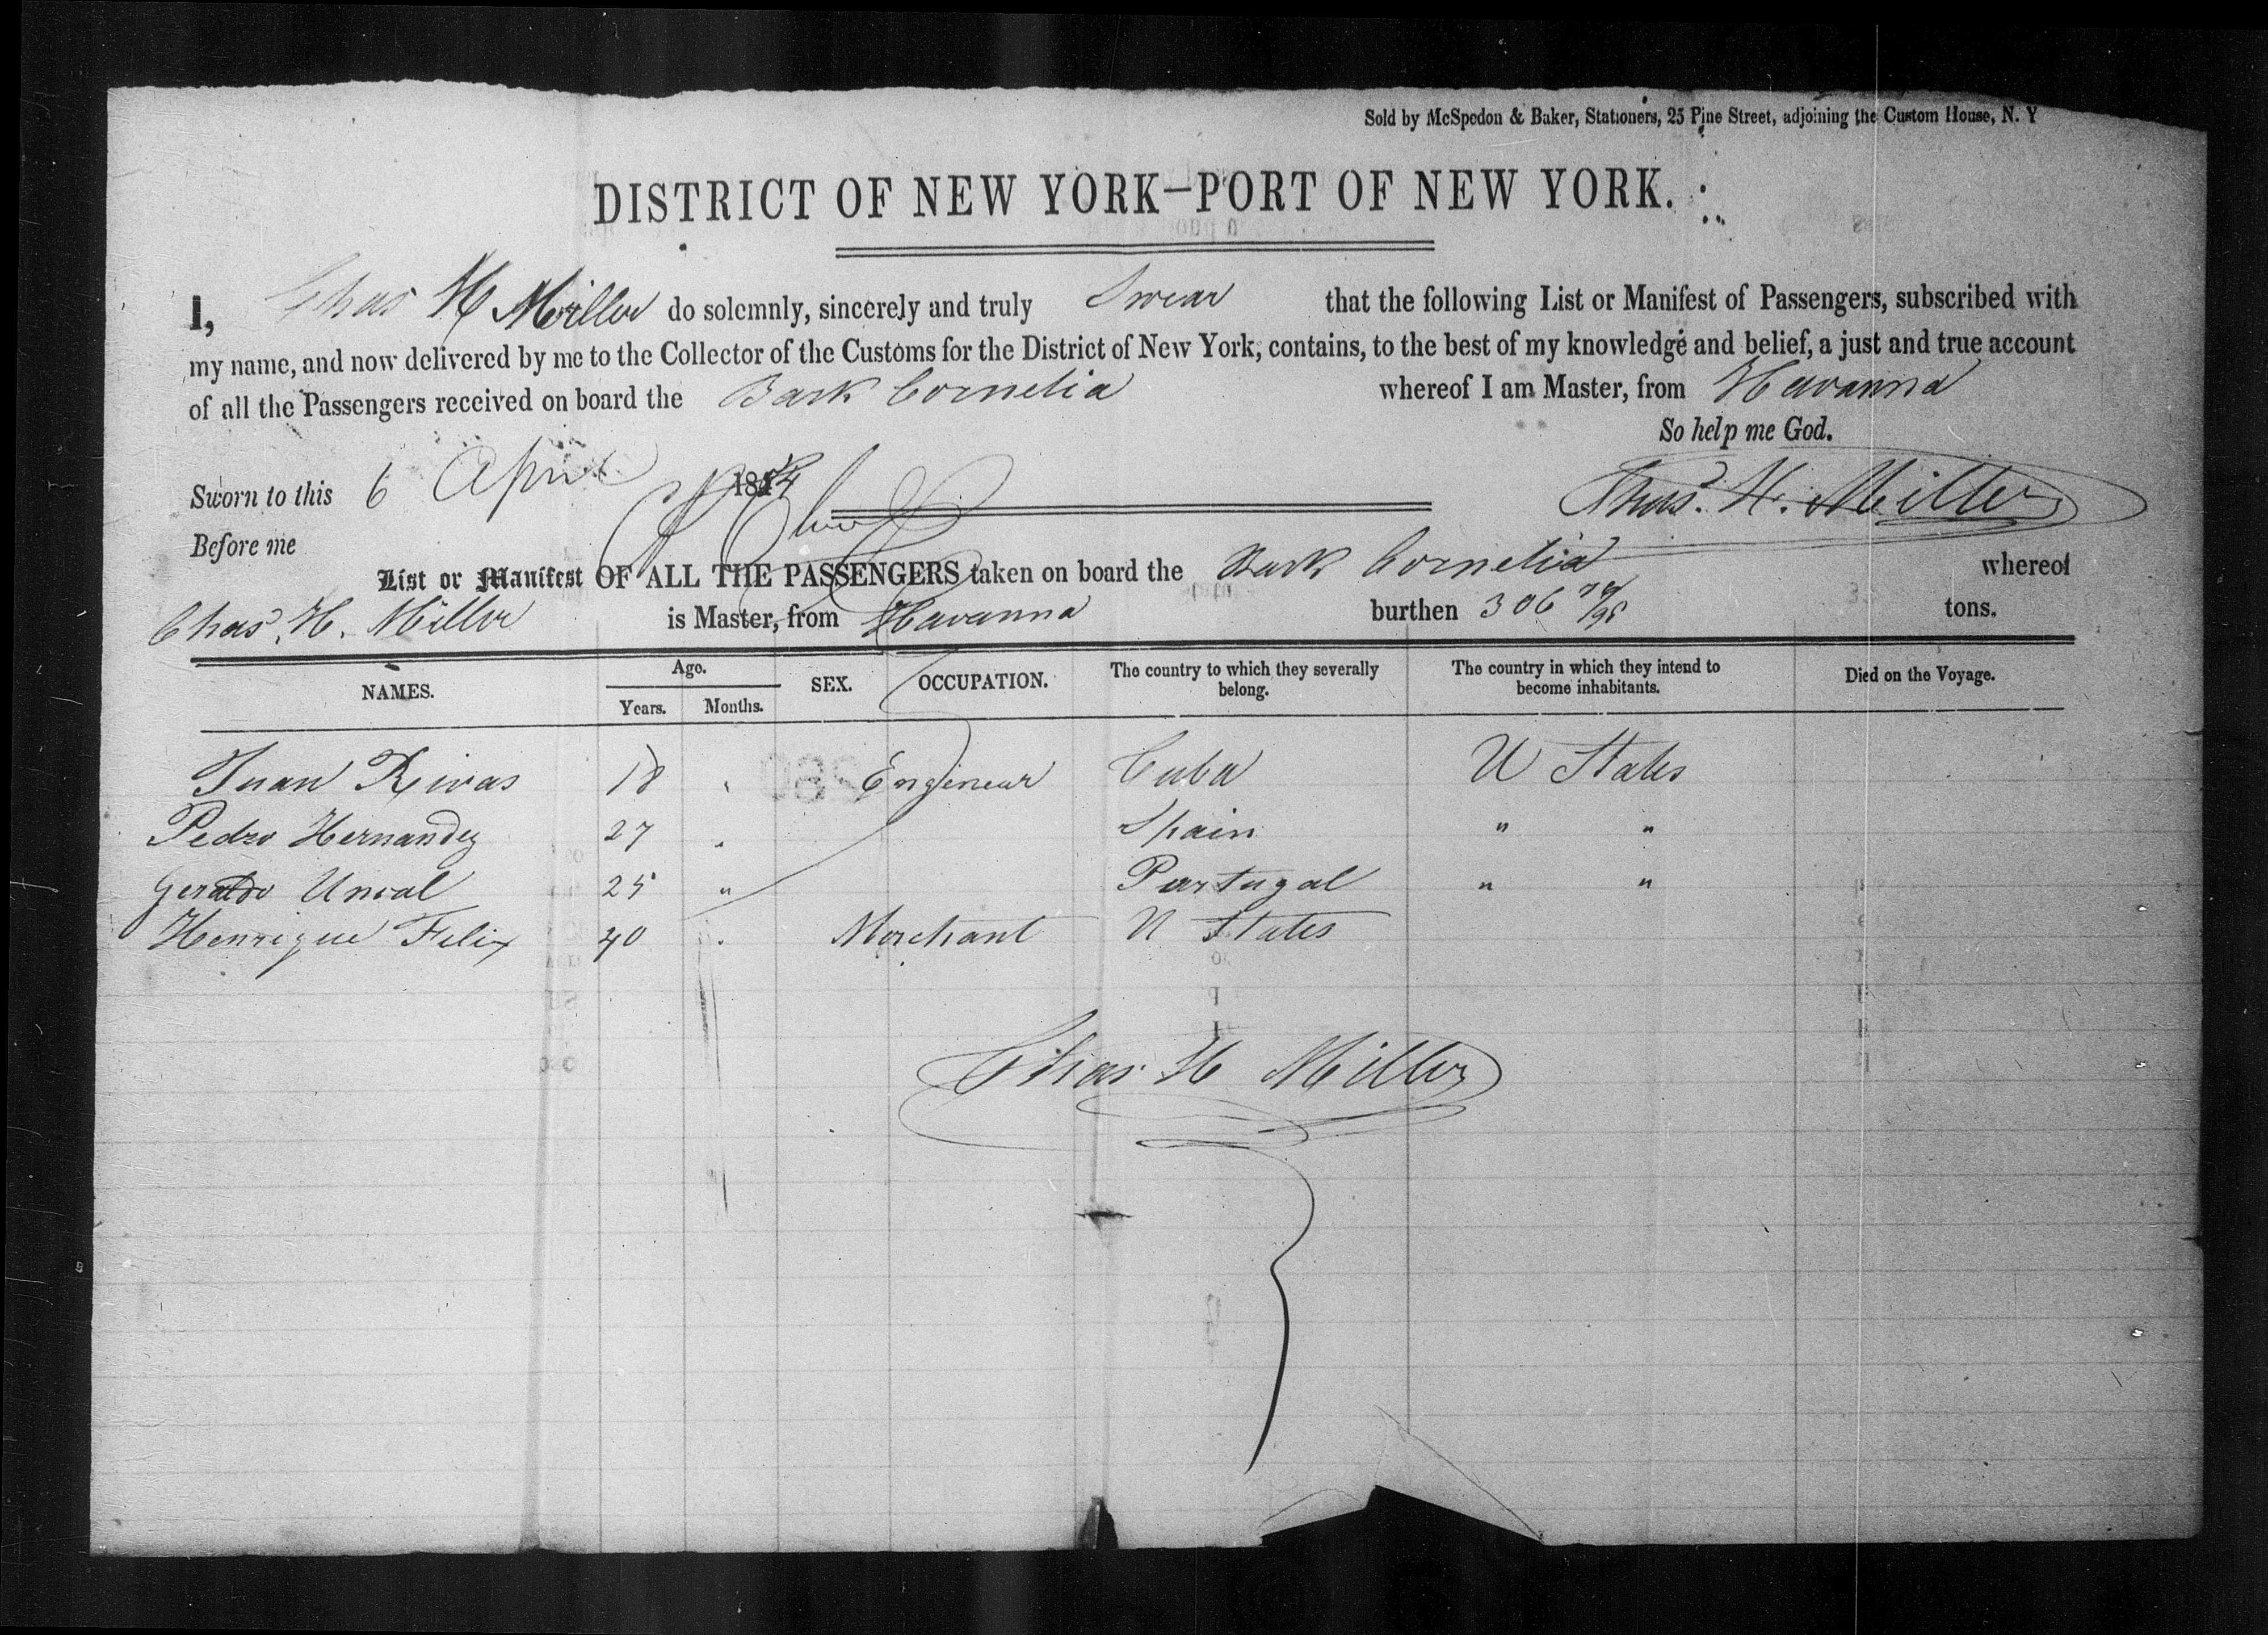 Sold by McSpedon & Baker, Stationers, 25 Pine Street, adjoining the Custom House, N. Y
DISTRICT OF NEW YORK—PORT OF NEW YORK.
I, Chas H Miller do solemnly, sincerely and truly Swear that the following List or Manifest of Passengers, subscribed with
my name, and now delivered by me to the Collector of the Customs for the District of New York, contains, to the best of my knowledge and belief, a just and true account
of all the Passengers received on board the Bark Cornelia whereof I am Master, from Havanna
So help me God.
Sworn to this 6 April 1854 Chas. H. Miller
Before me
List or Manifest OF ALL THE PASSENGERS taken on board the Bark Cornelia whereof
Chas. H. Miller is Master, from Havanna burthen 306 /95 tons.
NAMES. Age. Years. Months. SEX. OCCUPATION. The country to which they severally belong. The country in which they intend to become inhabitants. Died on the Voyage.
Juan Rivas 18 " Engineer Cuba U States
Pedro Hernandez 27 " Spain " "
Geraldo 25 " Portugal " "
Henrique Felix 40 " Merchant U States
Chas H Miller